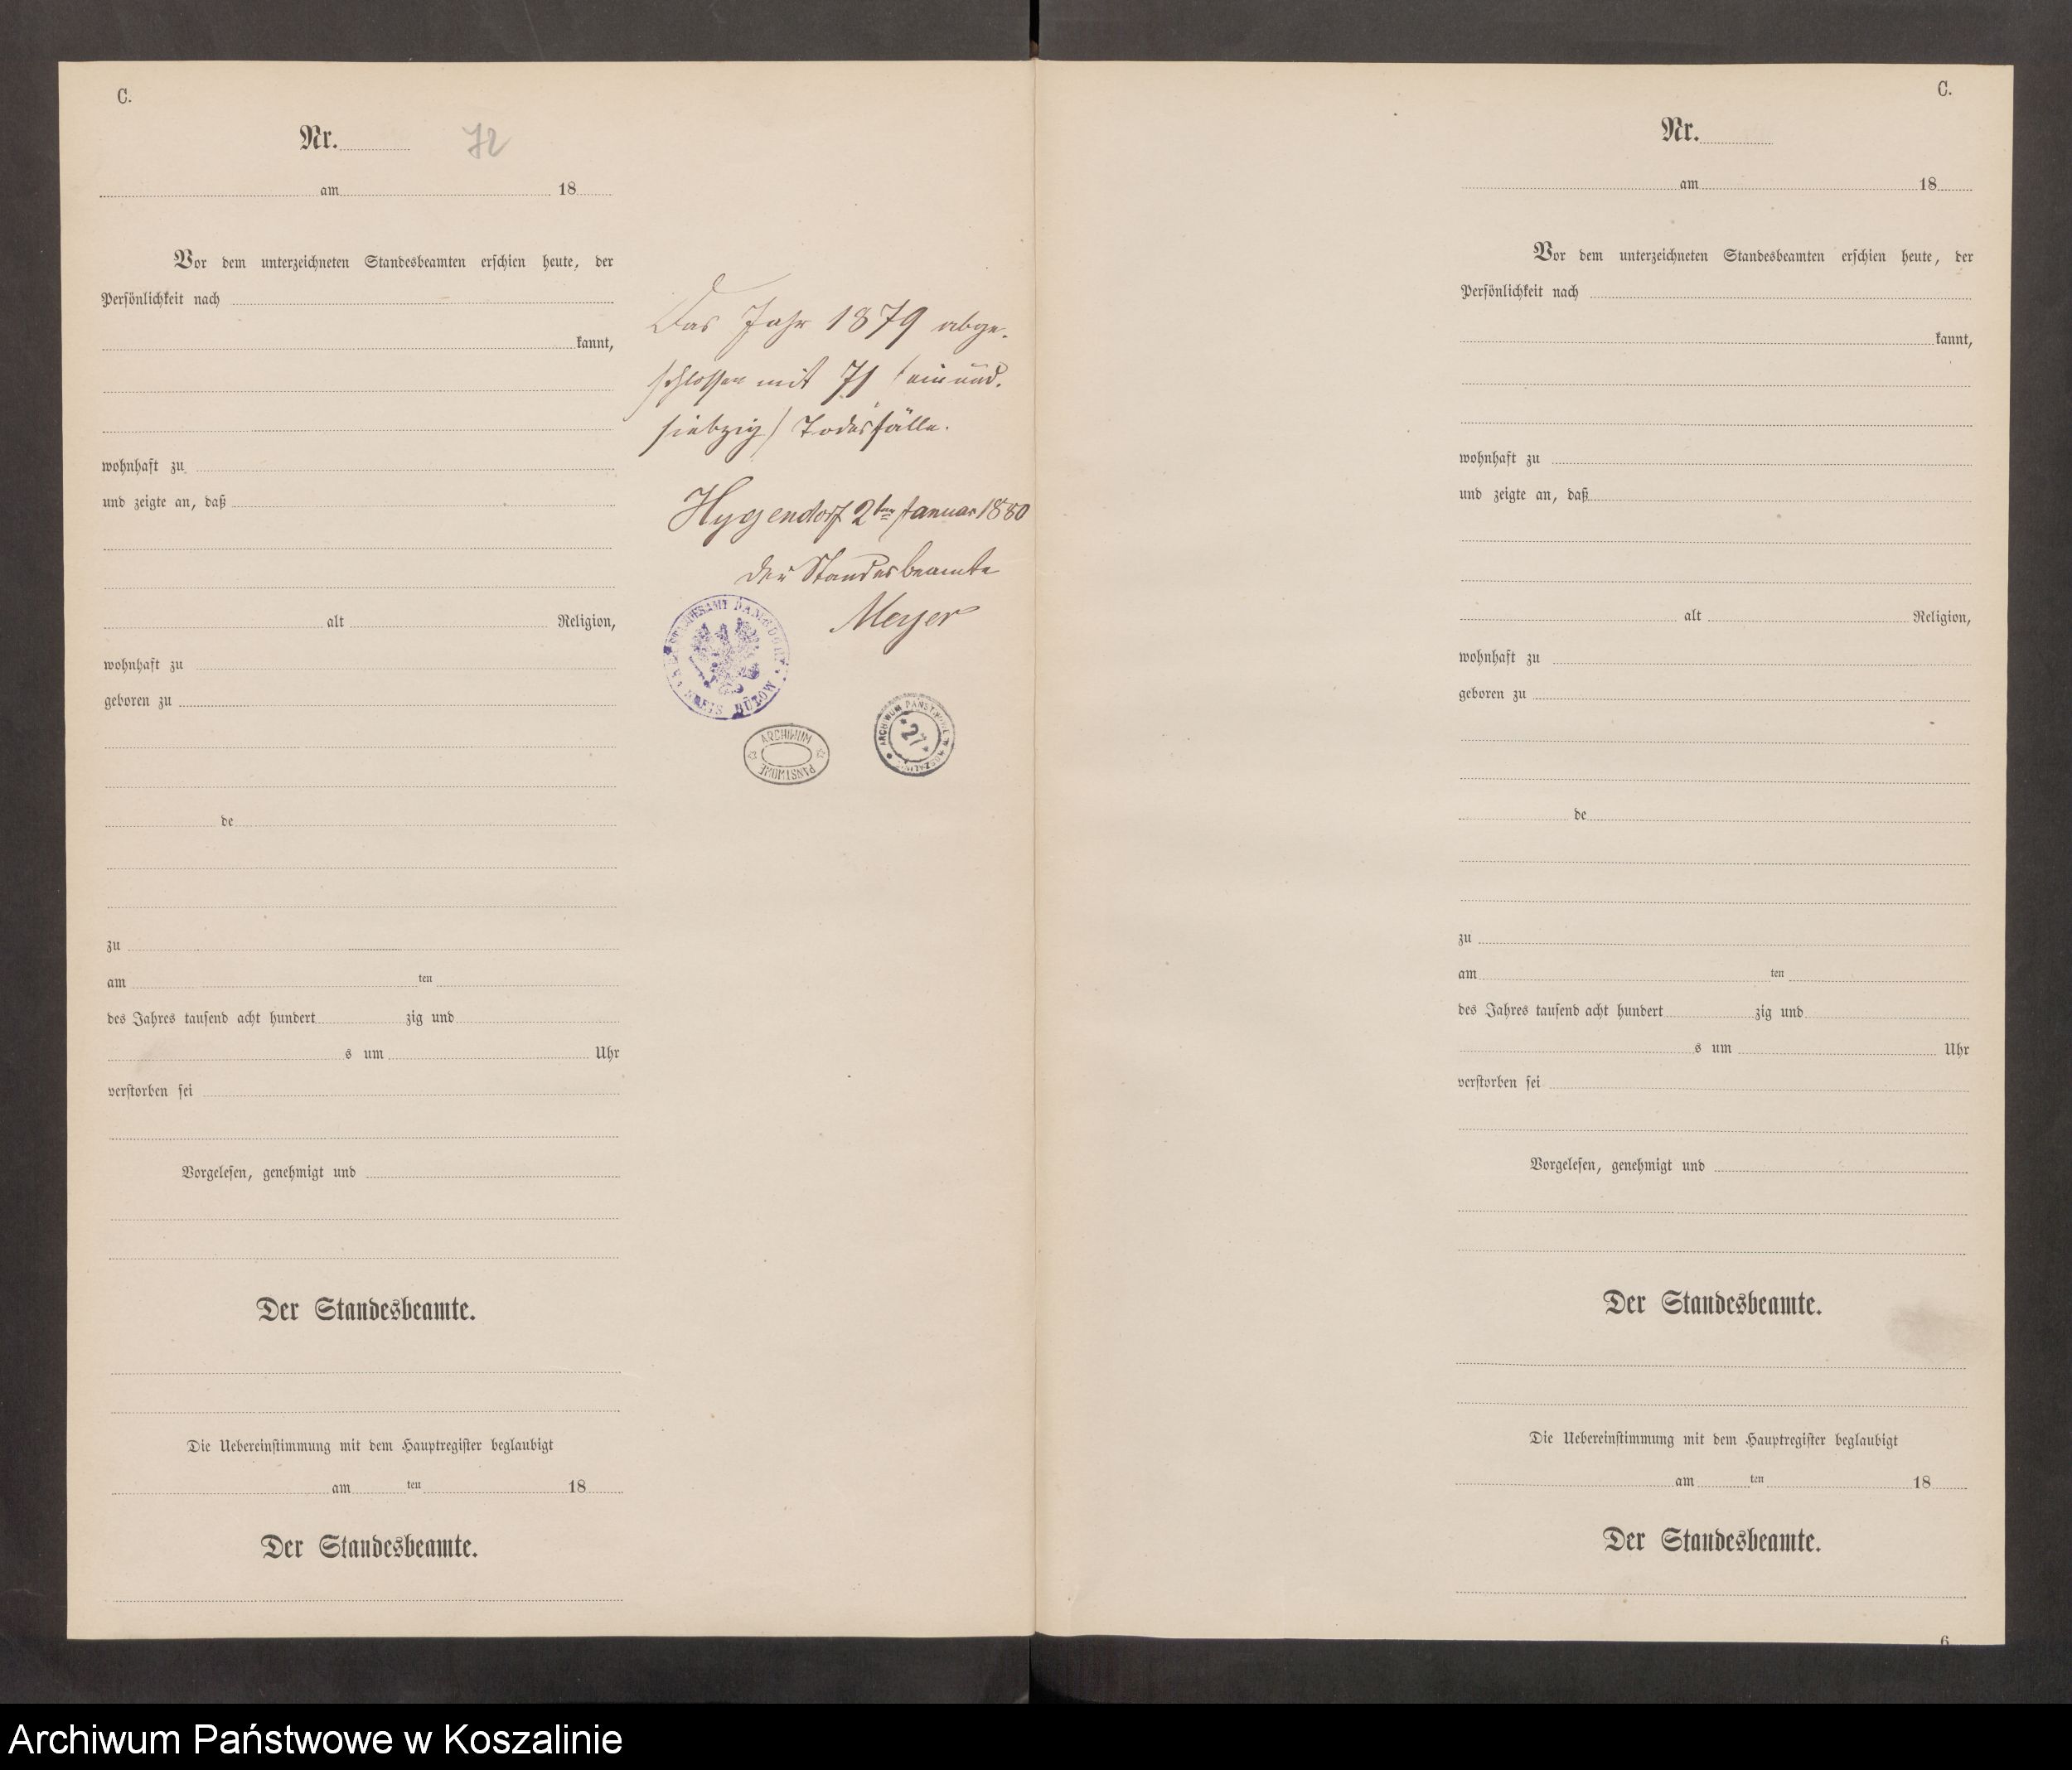 C.
Nr.
72
am 18
Vor dem unterzeichneten Standesbeamten erschien heute, der
Persönlichkeit nach
kannt,
wohnhaft zu
und zeigte an, daß
alt Religion,
wohnhaft zu
geboren zu
de
zu
am ten
des Jahres tausend acht hundert zig und
s um Uhr
verstorben sei
Vorgelesen, genehmigt und
Der Standesbeamte.
Die Uebereinstimmung mit dem Hauptregister beglaubigt
am ten 18
Der Standesbeamte.
Das Jahr 1879 abge-
schlossen mit 71 (einund-
siebzig) Todesfälle.
2ten Januar 1880
Der Standesbeamte
Meyer
STANDESAMT
KREIS BÜTOW
ARCHIWUM
PAŃSTWOWE
ARCHIWUM PAŃSTWOWE W KOSZALINIE
27
C.
Nr.
am 18
Vor dem unterzeichneten Standesbeamten erschien heute, der
Persönlichkeit nach
kannt,
wohnhaft zu
und zeigte an, daß
alt Religion,
wohnhaft zu
geboren zu
de
zu
am ten
des Jahres tausend acht hundert zig und
s um Uhr
verstorben sei
Vorgelesen, genehmigt und
Der Standesbeamte.
Die Uebereinstimmung mit dem Hauptregister beglaubigt
am ten 18
Der Standesbeamte.
6
Archiwum Państwowe w Koszalinie